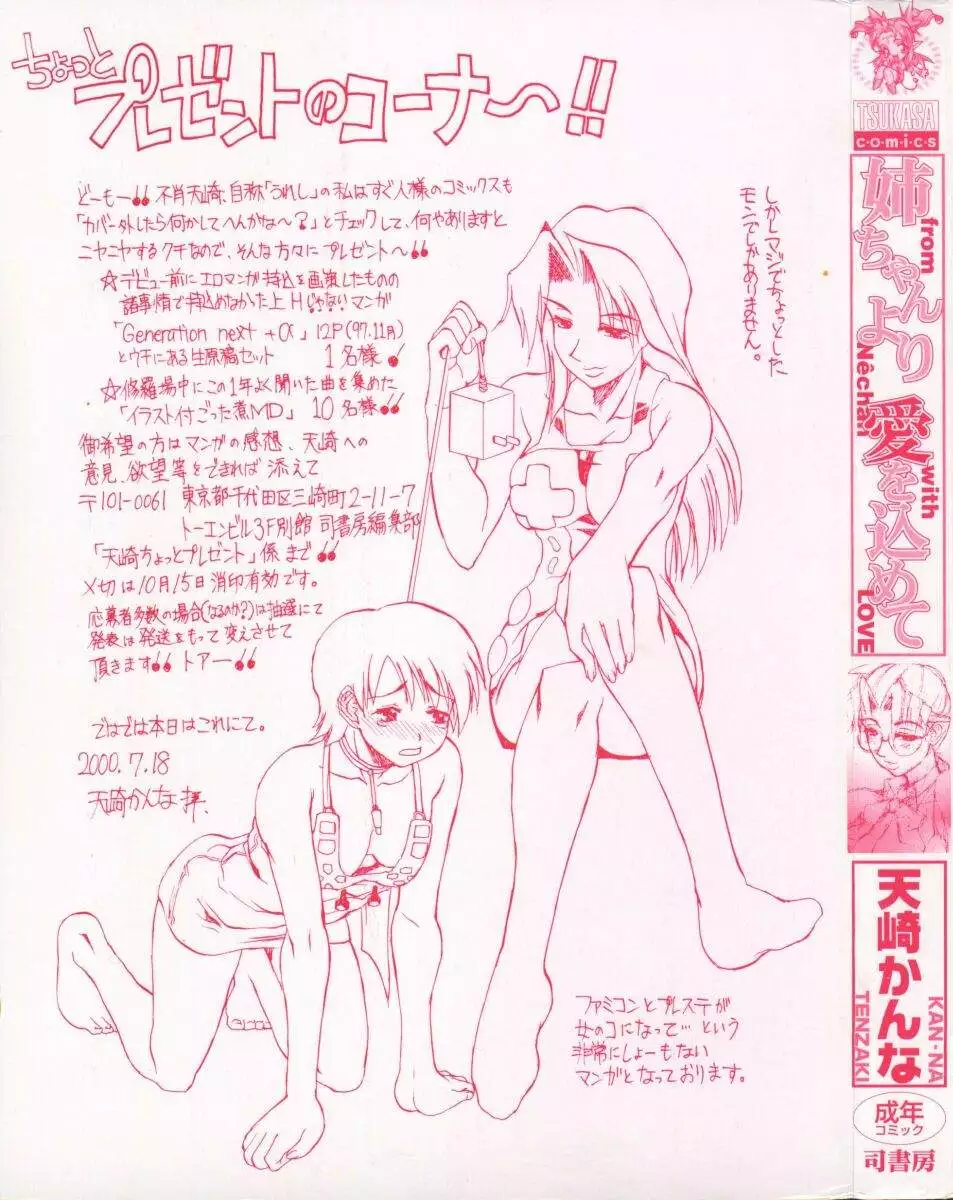 ちょっと
プレゼントのコーナ〜!!
どーもー!! 不肖天崎、自称「うれし」の私はすぐ人様のコミックスも
「カバー外したら何かしてへんがな〜?」とチェックして、何やありますと
ニヤニヤするクチなので、そんな方々にプレゼントへ!!
☆デビュー前にエロマンガ持込を画策したものの
諸事情で持込めなかった上Hじゃないマンガ
「Generation next +α」12P(97.11月)
とウチにある生原稿セット 1名様!
☆修羅場中にこの1年よく聞いた曲を集めた
「イラスト付ごった煮MD」 10名様!!
御希望の方はマンガの感想、天崎への
意見、欲望等をできれば添えて
〒101-0061 東京都千代田区三崎町2-11-7
トーエンビル3F別館 司書房編集部
「天崎ちょっとプレゼント」係まで!!
〆切は10月15日消印有効です。
応募者多数の場合(なるのか?)は抽選にて
発表は発送をもって変えさせて
頂きます!! トァー!!
ではでは本日はこれにて。
2000.7.18
天崎かんな拝.
しかしマジでちょっとした
モンでしかありません。
ファミコンとプレステが
女のコになって…という
非常にしょーもない
マンガとなっております。
TSUKASA
comics
姉ちゃんより愛を込めて
from Nêchan with LOVE
天崎かんな
KAN-NA
TENZAKI
成年
コミック
司書房